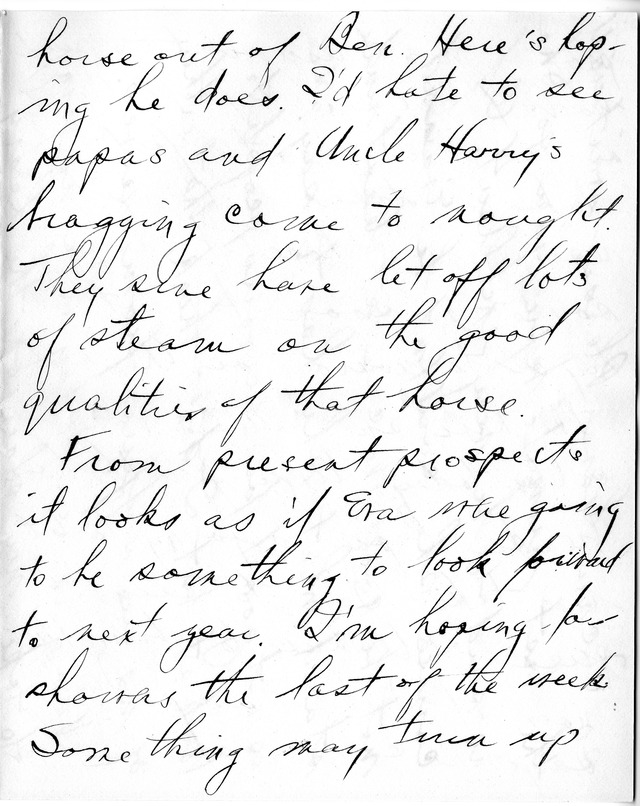 horse out of Ben. Here's hop-
ing he does. I'd hate to see
papas and Uncle Harry's
bragging come to nought.
They sure have let off lots
of steam on the good
qualities of that horse.
From present prospects
it looks as if Eva was going
to be something to look forward
to next year. I'm hoping for
showas the last of the week
Something may turn up